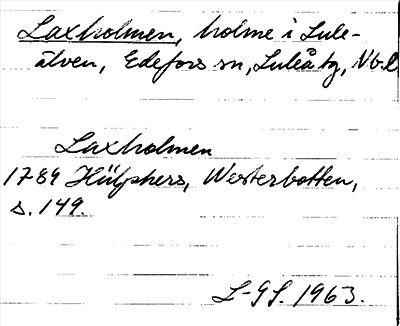 Laxholmen, holme i Lule-
älven, Edefors sn, Luleå tg, Nb.l.
Laxholmen
1789 Hülphers, Westerbotten,
s. 149.
L-GS. 1963.